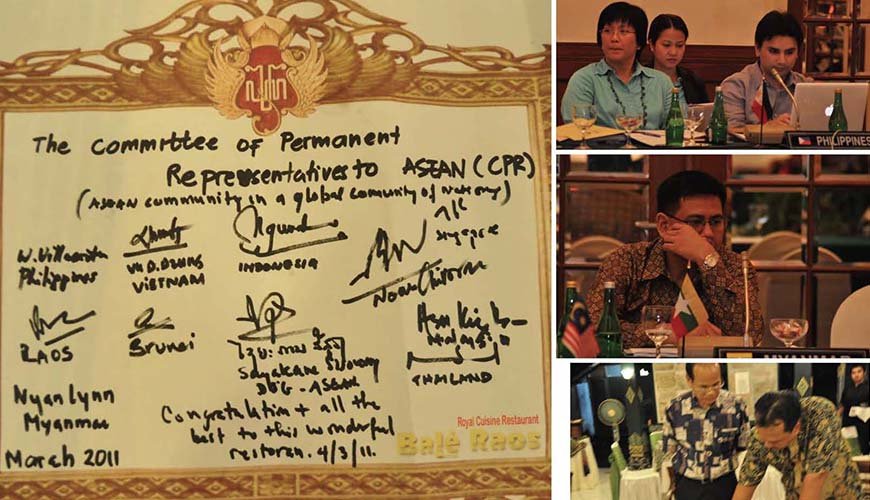 The Committee of Permanent
Representatives to ASEAN (CPR)
(ASEAN community in a global community of nations)
W. Villacorta
Philippines
VU D. DZUNG
VIETNAM
INDONESIA
Singapore
LAOS
Brunei
Sayakane
DSG - ASEAN
Malaysia
THAILAND
Nyan Lynn
Myanmar
March 2011
Congratulation & all the
best to this wonderful
restoran. 4/3/11.
Royal Cuisine Restaurant
Balé Raos
PHILIPPINES
MYANMAR